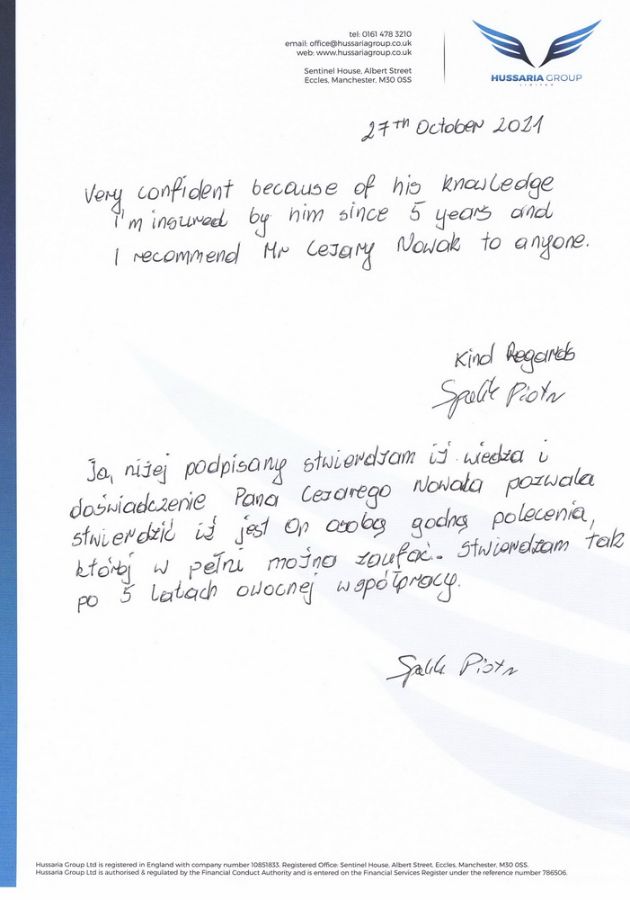 tel: 0161 478 3210
email: office@hussariagroup.co.uk
web: www.hussariagroup.co.uk
Sentinel House, Albert Street
Eccles, Manchester, M30 0SS
HUSSARIA GROUP
LIMITED
27th October 2021
Very confident because of his knowledge
I'm insured by him since 5 years and
I recommend Mr Cezary Nowak to anyone.
Kind Regards
Piotr
Ja, niżej podpisany stwierdzam iż wiedza i
doświadczenie Pana Cezarego Nowaka pozwala
stwierdzić iż jest On osobą godną polecenia,
której w pełni można zaufać. Stwierdzam tak
po 5 latach owocnej współpracy.
Piotr
Hussaria Group Ltd is registered in England with company number 10851833. Registered Office: Sentinel House, Albert Street, Eccles, Manchester, M30 0SS.
Hussaria Group Ltd is authorised & regulated by the Financial Conduct Authority and is entered on the Financial Services Register under the reference number 786506.